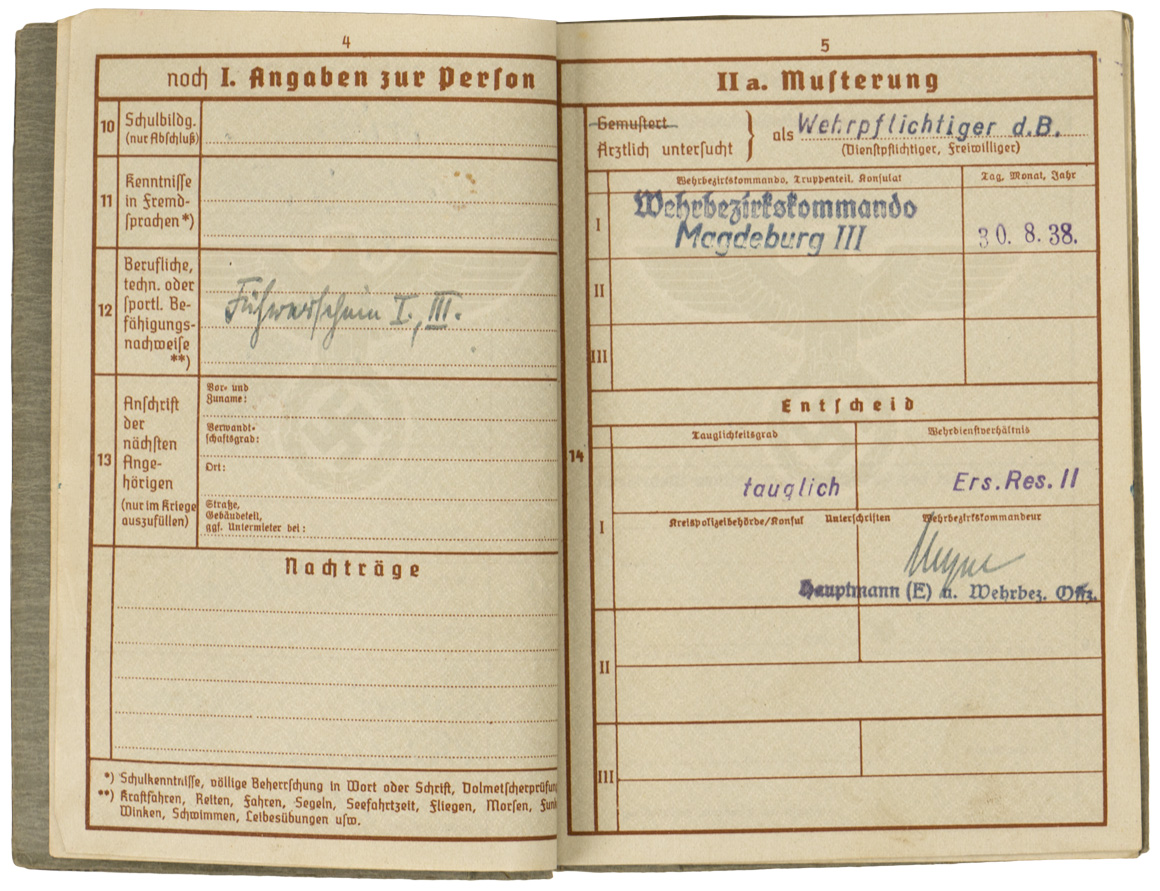 4
noch I. Angaben zur Person
10 Schulbildg.
(nur Abschluß)
11 Kenntnisse
in Fremd-
sprachen *)
12 Berufliche,
techn. oder
sportl. Be-
fähigungs-
nachweise
**)
Führerschein I., III.
13 Anschrift
der
nächsten
Ange-
hörigen
(nur im Kriege
auszufüllen)
Vor- und
Zuname:
Verwandt-
schaftsgrad:
Ort:
Straße,
Gebäudeteil,
ggf. Untermieter bei:
Nachträge
*) Schulkenntnisse, völlige Beherrschung in Wort oder Schrift, Dolmetscherprüfun
**) Kraftfahren, Reiten, Fahren, Segeln, Seefahrtzeit, Fliegen, Morsen, Funk
Winken, Schwimmen, Leibesübungen usw.
5
II a. Musterung
Gemustert
Ärztlich untersucht
als Wehrpflichtiger d.B.
(Dienstpflichtiger, Freiwilliger)
Wehrbezirkskommando, Truppenteil, Konsulat
Tag, Monat, Jahr
I Wehrbezirkskommando
Magdeburg III
30. 8. 38.
II
III
Entscheid
14
Tauglichkeitsgrad
Wehrdienstverhältnis
I tauglich
Ers. Res. II
Kreispolizeibehörde/Konsul Unterschriften Wehrbezirkskommandeur
Hauptmann (E) u. Wehrbez. Offz.
II
III